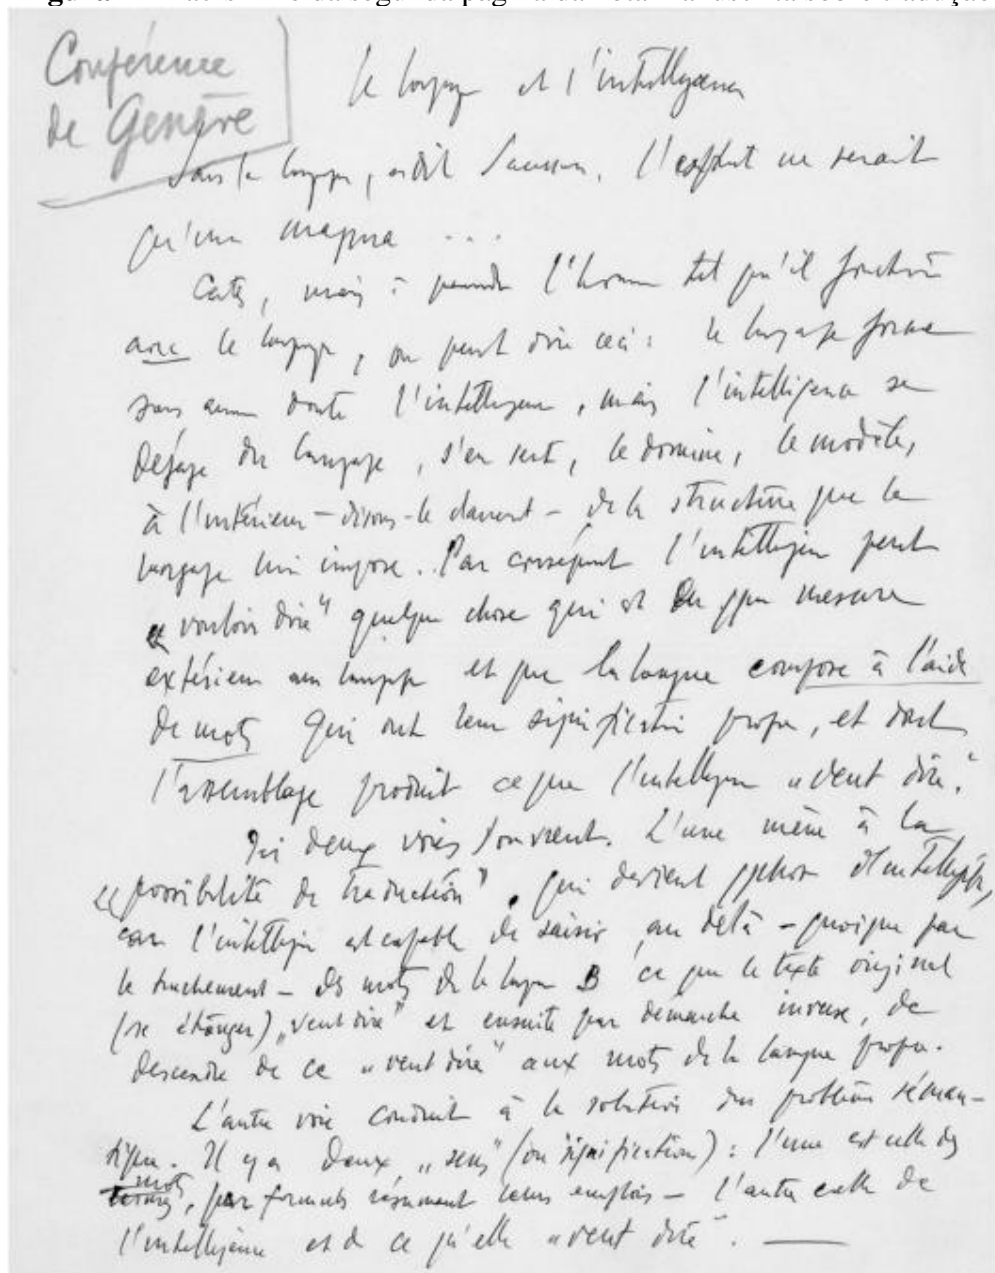 Conférence
de Genève
Le langage et l'intelligence
Sans le langage, a dit Saussure, l'esprit ne serait
qu'un magma ...
Certes, mais à prendre l'homme tel qu'il fonctionne
avec le langage, on peut dire ceci : le langage forme
sans aucun doute l'intelligence, mais l'intelligence se
dégage du langage, s'en sert, le domine, le modèle,
à l'intérieur – disons-le clairement – de la structure que le
langage lui impose. Par conséquent l'intelligence peut
« vouloir dire" quelque chose qui est en mesure
extérieur au langage et que la langue compose à l'aide
de mots qui ont leur signification propre, et dont
l'assemblage produit ce que l'intelligence „veut dire".
Ici deux voies s'ouvrent. L'une mène à la
« possibilité de traduction", qui devient d'intelligence,
car l'intelligence est capable de saisir au delà – quoique par
le truchement – des mots de la langue B ce que le texte original
(étranger) „veut dire" et ensuite par démarche inverse, de
descendre de ce „veut dire" aux mots de la langue propre.
L'autre voie conduit à la solution du problème séman-
tique. Il y a deux „sens" (ou signification) : l'une est celle des
mots, formels résument leurs emplois – l'autre celle de
l'intelligence et de ce qu'elle „veut dire". —